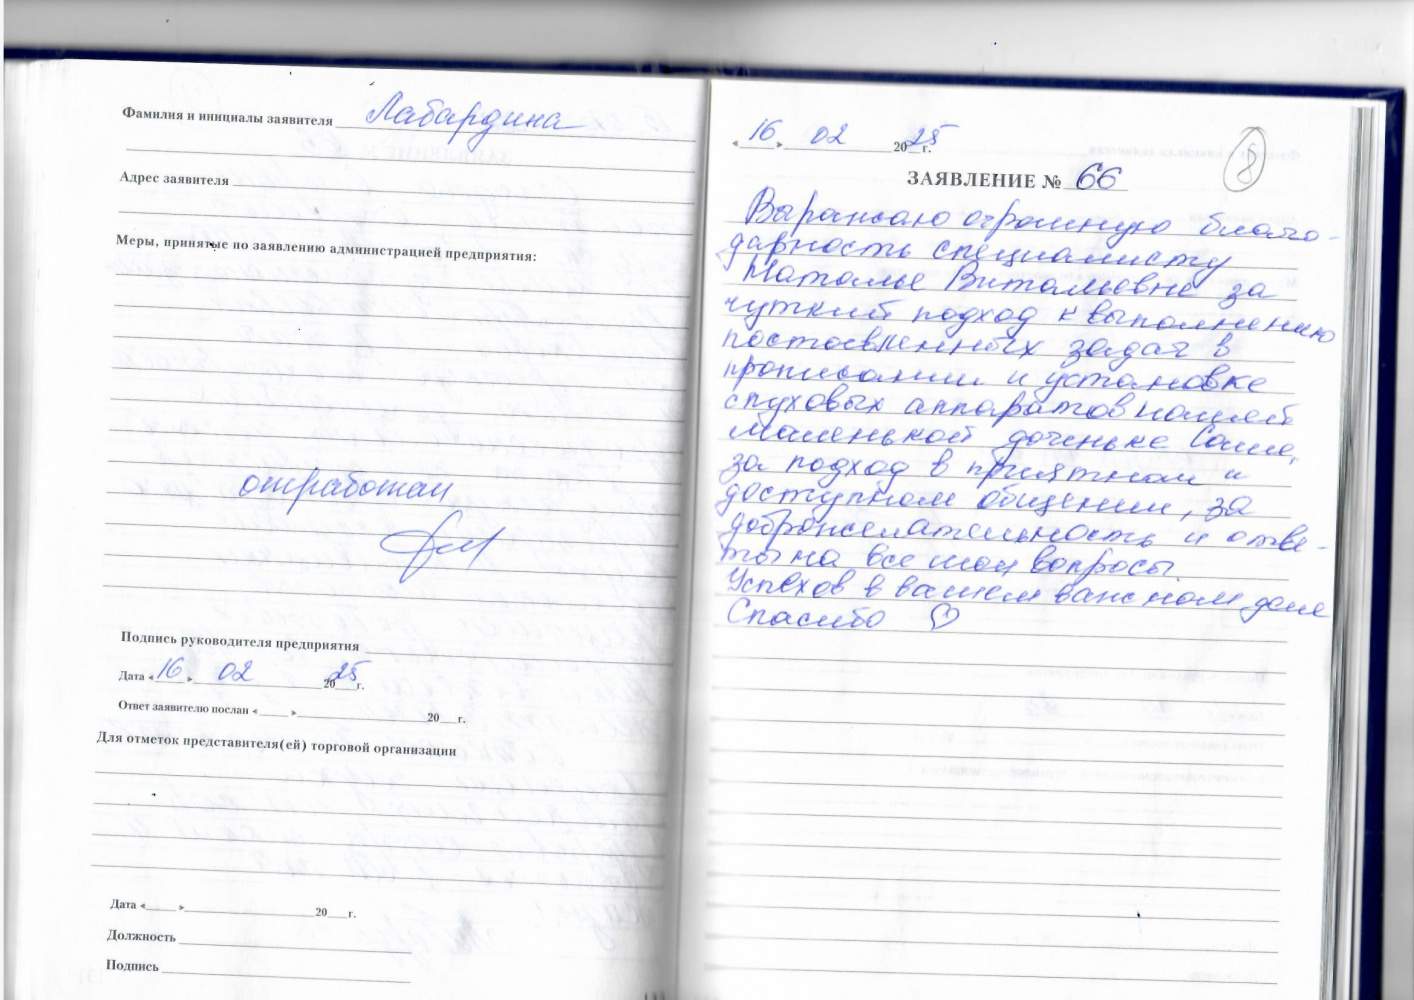 Фамилия и инициалы заявителя Лабардина
Адрес заявителя
Меры, принятые по заявлению администрацией предприятия:
отработан
Подпись руководителя предприятия
Дата «16» 02 2025 г.
Ответ заявителю послан «___» 20__г.
Для отметок представителя(ей) торговой организации
Дата «___» 20__г.
Должность
Подпись
«16» 02 2025 г.
8
ЗАЯВЛЕНИЕ № 66
Выражаю огромную благо-
дарность специалисту
Наталье Витальевне за
чуткий подход к выполнению
поставленных задач в
прописании и установке
слуховых аппаратов нашей
маленькой доченьке Саше,
за подход в приятном и
доступном общении, за
доброжелательность и отве-
ты на все мои вопросы.
Успехов в вашем важном деле
Спасибо ♡